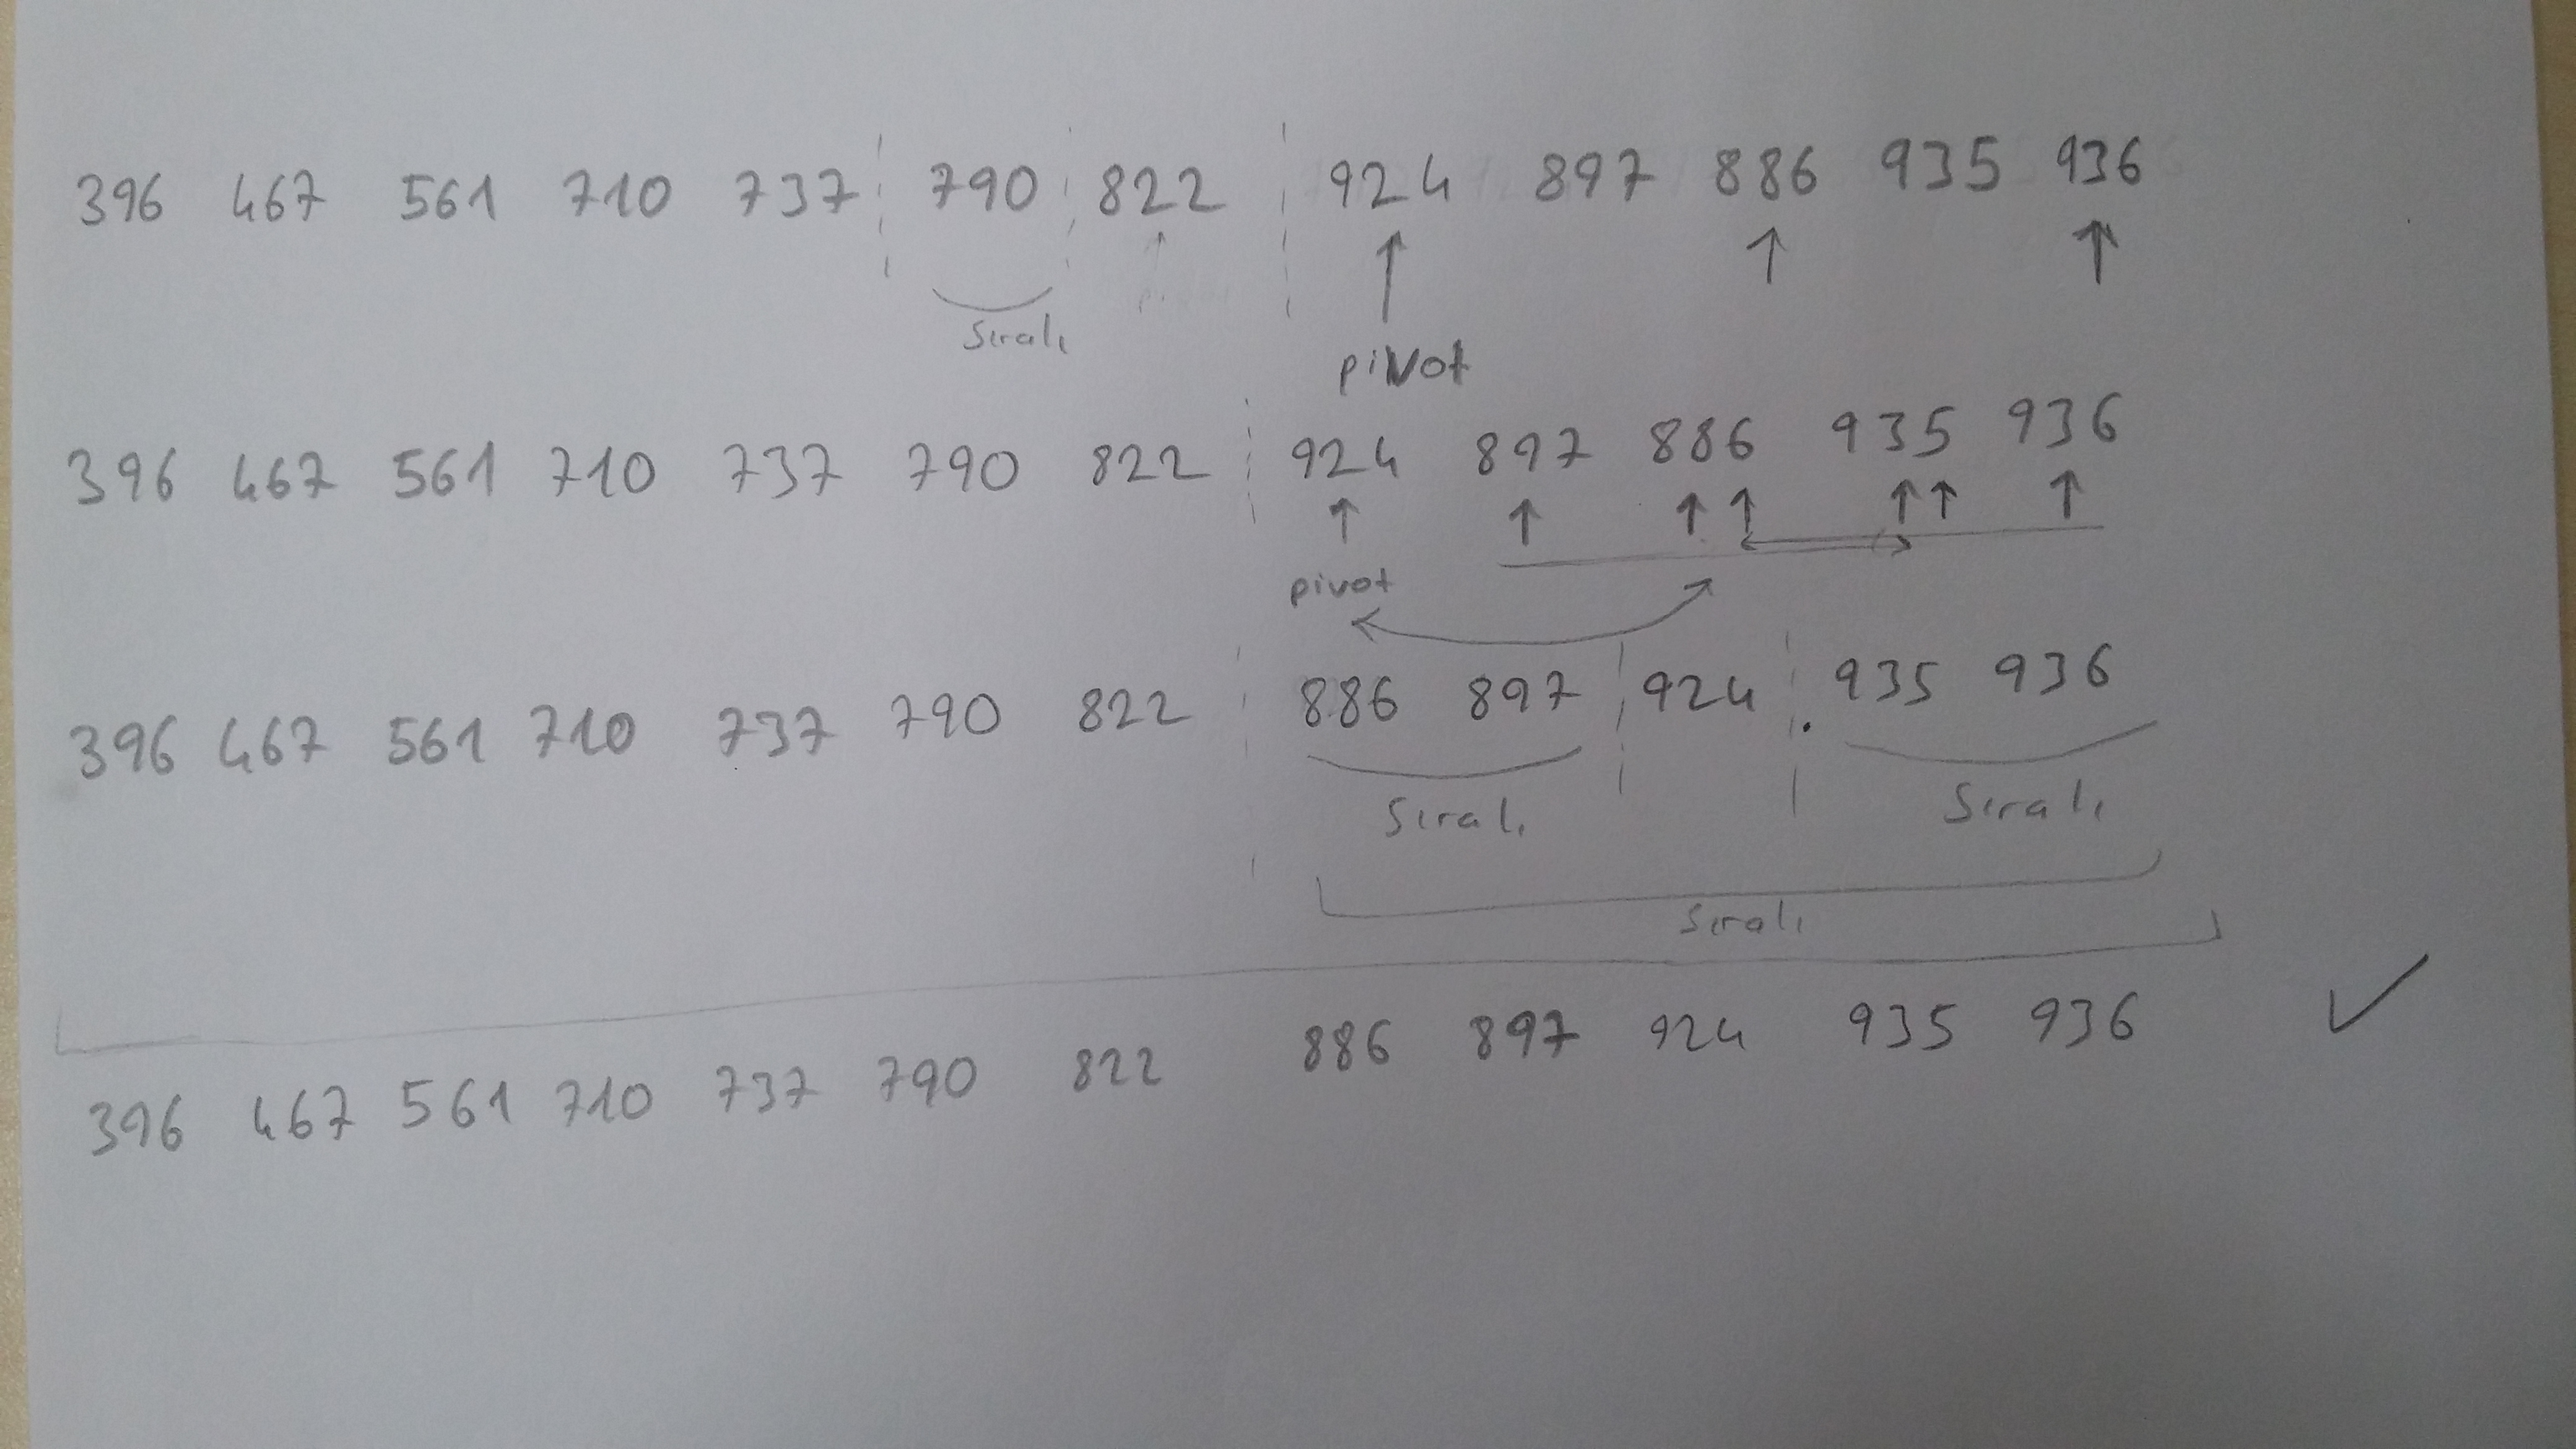 396 467 561 710 737 790 822 924 897 886 935 936
Sıralı
pivot
396 467 561 710 737 790 822 924 897 886 935 936
pivot
396 467 561 710 737 790 822 886 897 924 935 936
Sıralı Sıralı
Sıralı
396 467 561 710 737 790 822 886 897 924 935 936